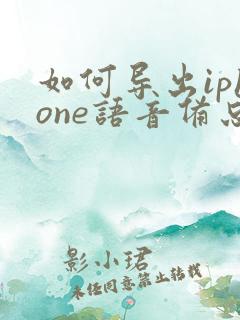 如何导出iph
one語音備忘
影小珺
未经同意禁止转载